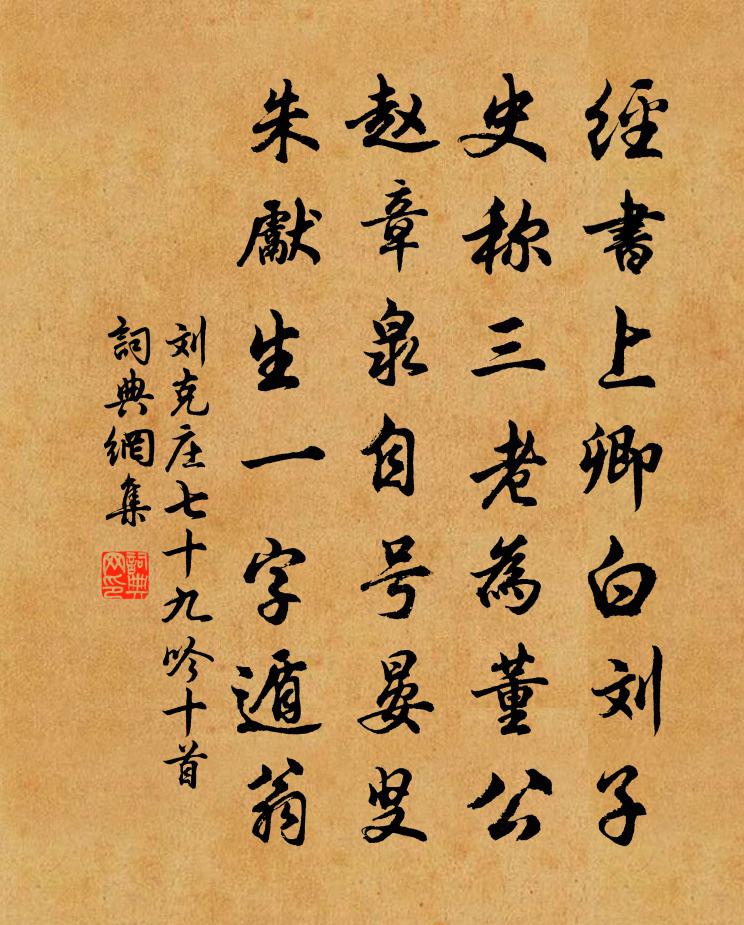 經書上卿白刘子
史称三老為董公
赵章泉自号晏叟
朱獻生一字遁翁
刘克庄七十九吟十首
詞典網集
詞典網印